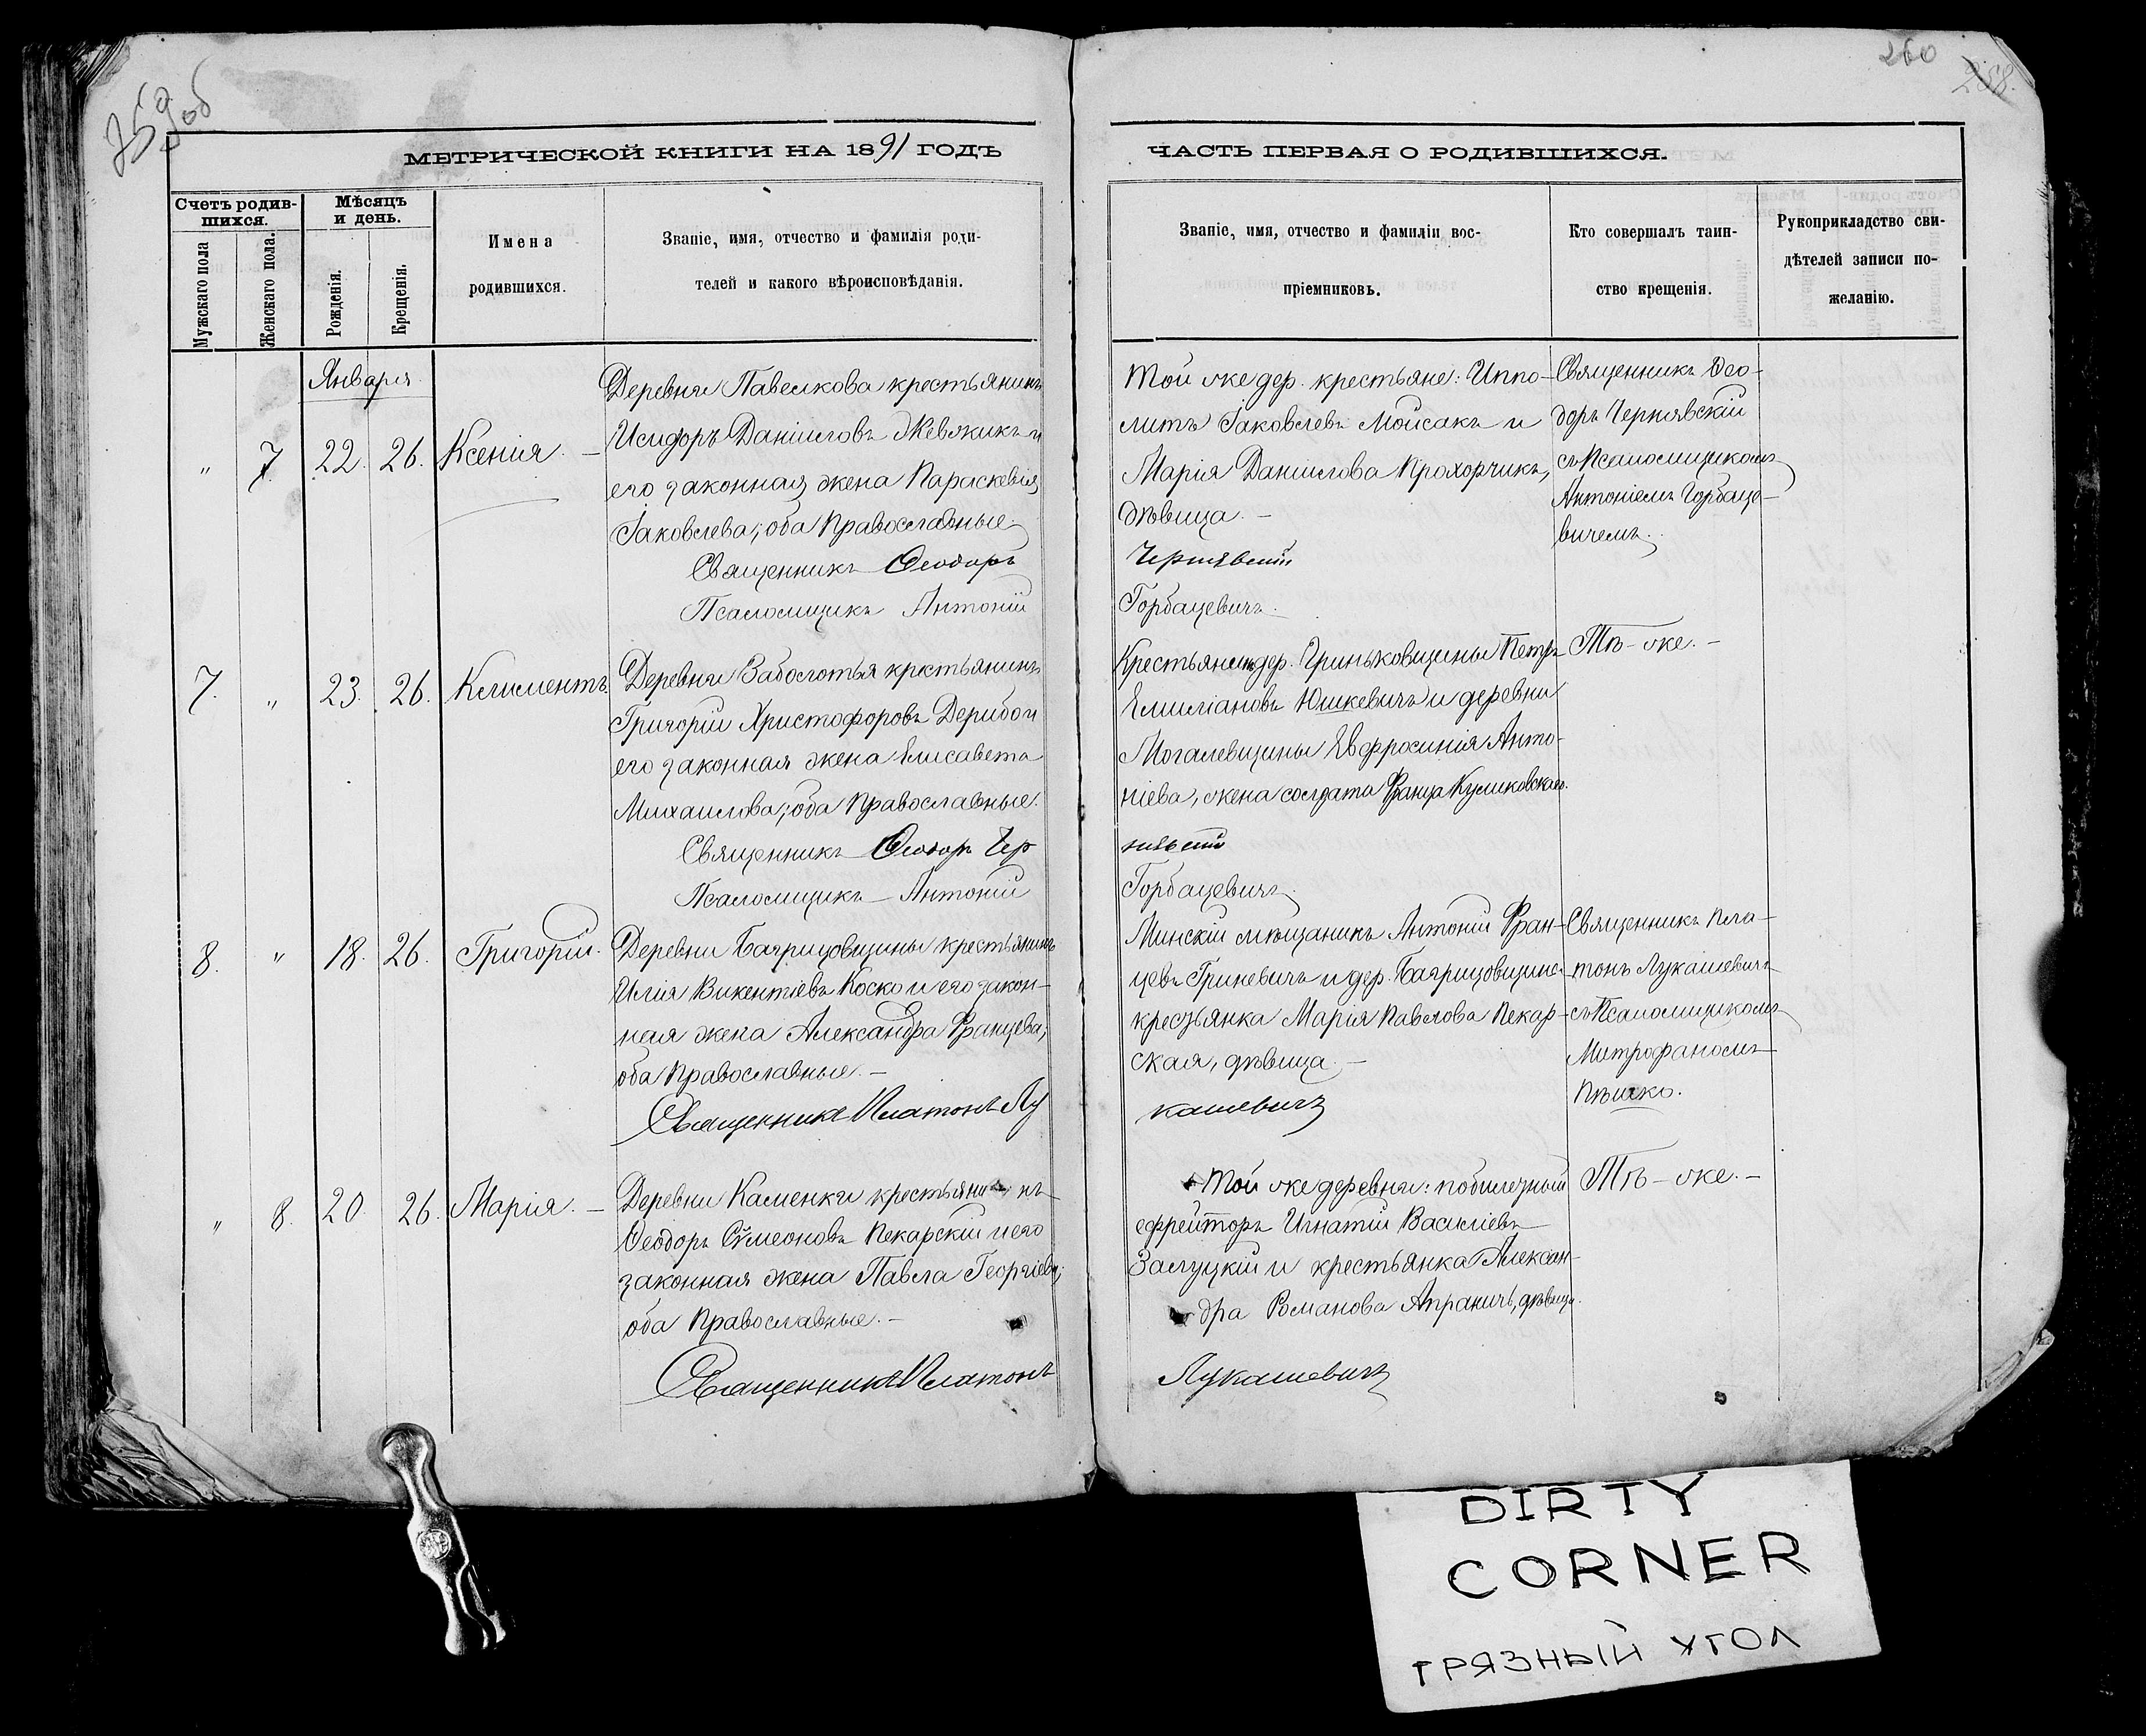 259 об
260
258.
МЕТРИЧЕСКОЙ КНИГИ НА 1891 ГОДЪ
ЧАСТЬ ПЕРВАЯ О РОДИВШИХСЯ.
Счетъ родив-
шихся.
Мужскаго пола
Женскаго пола.
Мѣсяцъ
и день.
Рожденія.
Крещенія.
Имена
родившихся.
Званіе, имя, отчество и фамилія роди-
телей и какого вѣроисповѣданія.
Званіе, имя, отчество и фамиліи вос-
пріемниковъ.
Кто совершалъ таин-
ство крещенія.
Рукоприкладство сви-
дѣтелей записи по-
желанію.
Января
" 7 22. 26. Ксенія. –
Деревни Павелкова крестьянинъ
Исидоръ Даніиловъ и
его законная жена Параскевія
Іаковлева; оба Православные.
Священникъ Ѳеодоръ
Псаломщикъ Антоній
Той же дер. крестьяне: Иппо-
литъ Іаковлевъ Мойсакъ и
Марія Даніилова Прохорчикъ,
дѣвица. –
Чернявскій
Горбацевичъ.
Священникъ Ѳео-
доръ Чернявскій
съ Псаломщикомъ
Антоніемъ Горбаце-
вичемъ.
7. " 23. 26. Климентъ.
Деревни Заболотья крстьянинъ
Григорій Христофоровъ Дерибо и
его законная жена Елисавета
Михаилова; оба Православные.
Священникъ Ѳеодоръ Чер
Псаломщикъ Антоній
Крестьянинъ дер. Гриньковщины Петръ
Емиліановъ Юшкевичъ и деревни
Могалевщины Евфросинія Анто-
ніева, жена солдата Франца Куликовскаго.
нявскій
Горбацевичъ.
Тѣ-же. –
8. " 18. 26. Григорій.
Деревни Багрицовщины крестьянинъ
Илія Викентіевъ Коско и его закон-
ная жена Александра Францева;
оба Православные. –
Священникъ Платонъ Лу
Минскій мѣщанинъ Антоній Фран-
цевъ Гриневичъ и дер. Багрицовщины
крестьянка Марія Павлова Пекар-
ская, дѣвица. –
кашевичъ
Священникъ Пла-
тонъ Лукашевичъ
съ Псаломщикомъ
Митрофаномъ
Пѣшко.
" 8. 20. 26. Марія. –
Деревни Каменки крестьянинъ
Ѳеодоръ Сѵмеоновъ Пекарскій и его
законная жена Павла Георгіева;
оба Православные. –
Священникъ Платонъ
Той же деревни: побилетный
ефрейторъ Игнатій Василіевъ
Залуцкій и крестьянка Алексан-
дра Романова Апраничъ, дѣвица.
Лукашевичъ
Тѣ-же. –
DIRTY
CORNER
ГРЯЗНЫЙ УГОЛ